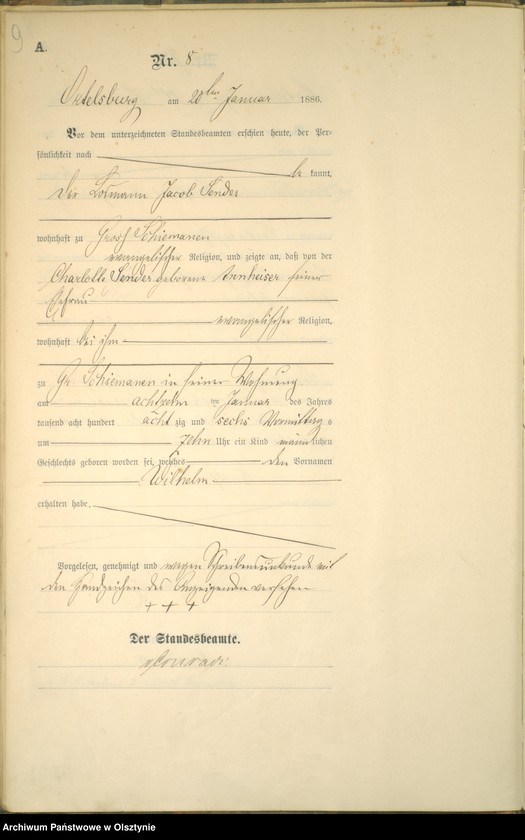 9
A.
Nr. 8
Ortelsburg am 20ten Januar 1886.
Vor dem unterzeichneten Standesbeamten erschien heute, der Per-
sönlichkeit nach
be kannt,
der Losmann Jacob Sender
wohnhaft zu Groß Schiemanen
evangelischer Religion, und zeigte an, daß von der
Charlotte Sender geborene Annheiser seiner
Ehefrau
evangelischer Religion,
wohnhaft bei ihm
zu Gr. Schiemanen in seiner Wohnung
am achtzehnten Januar des Jahres
tausend acht hundert acht zig und sechs Vormittags
um zehn Uhr ein Kind männlichen
Geschlechts geboren worden sei, welches den Vornamen
Wilhelm
erhalten habe.
Vorgelesen, genehmigt und wegen Schreibensunkunde mit
den Handzeichen des Anzeigenden versehen
+ + +
Der Standesbeamte.
Archiwum Państwowe w Olsztynie